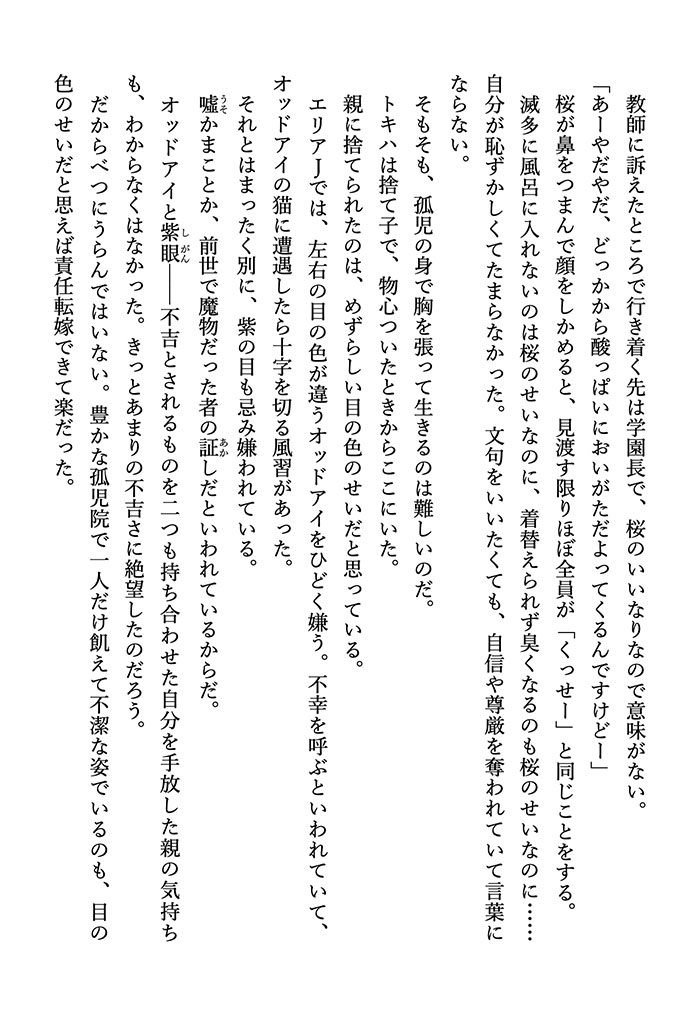 教師に訴えたところで行き着く先は学園長で、桜のいいなりなので意味がない。
「あーやだやだ、どっかから酸っぱいにおいがただよってくるんですけどー」
桜が鼻をつまんで顔をしかめると、見渡す限りほぼ全員が「くっせー」と同じことをする。
滅多に風呂に入れないのは桜のせいなのに、着替えられず臭くなるのも桜のせいなのに……
自分が恥ずかしくてたまらなかった。文句をいいたくても、自信や尊厳を奪われていて言葉に
ならない。
そもそも、孤児の身で胸を張って生きるのは難しいのだ。
トキハは捨て子で、物心ついたときからここにいた。
親に捨てられたのは、めずらしい目の色のせいだと思っている。
エリアJでは、左右の目の色が違うオッドアイをひどく嫌う。不幸を呼ぶといわれていて、
オッドアイの猫に遭遇したら十字を切る風習があった。
それとはまったく別に、紫の目も忌み嫌われている。
嘘うそかまことか、前世で魔物だった者の証あかしだといわれているからだ。
オッドアイと紫眼しがん――不吉とされるものを二つも持ち合わせた自分を手放した親の気持ち
も、わからなくはなかった。きっとあまりの不吉さに絶望したのだろう。
だからべつにうらんではいない。豊かな孤児院で一人だけ飢えて不潔な姿でいるのも、目の
色のせいだと思えば責任転嫁できて楽だった。